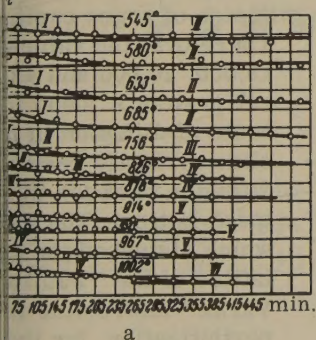 I 545° II
I 580° II
I 633° II
I 685° II
II 758° III
II III 826° IV
878° IV
914° V
V
IV 967° V
V 1002° VI
75 105 145 175 205 235 265 295 325 355 385 415 445 min.
a